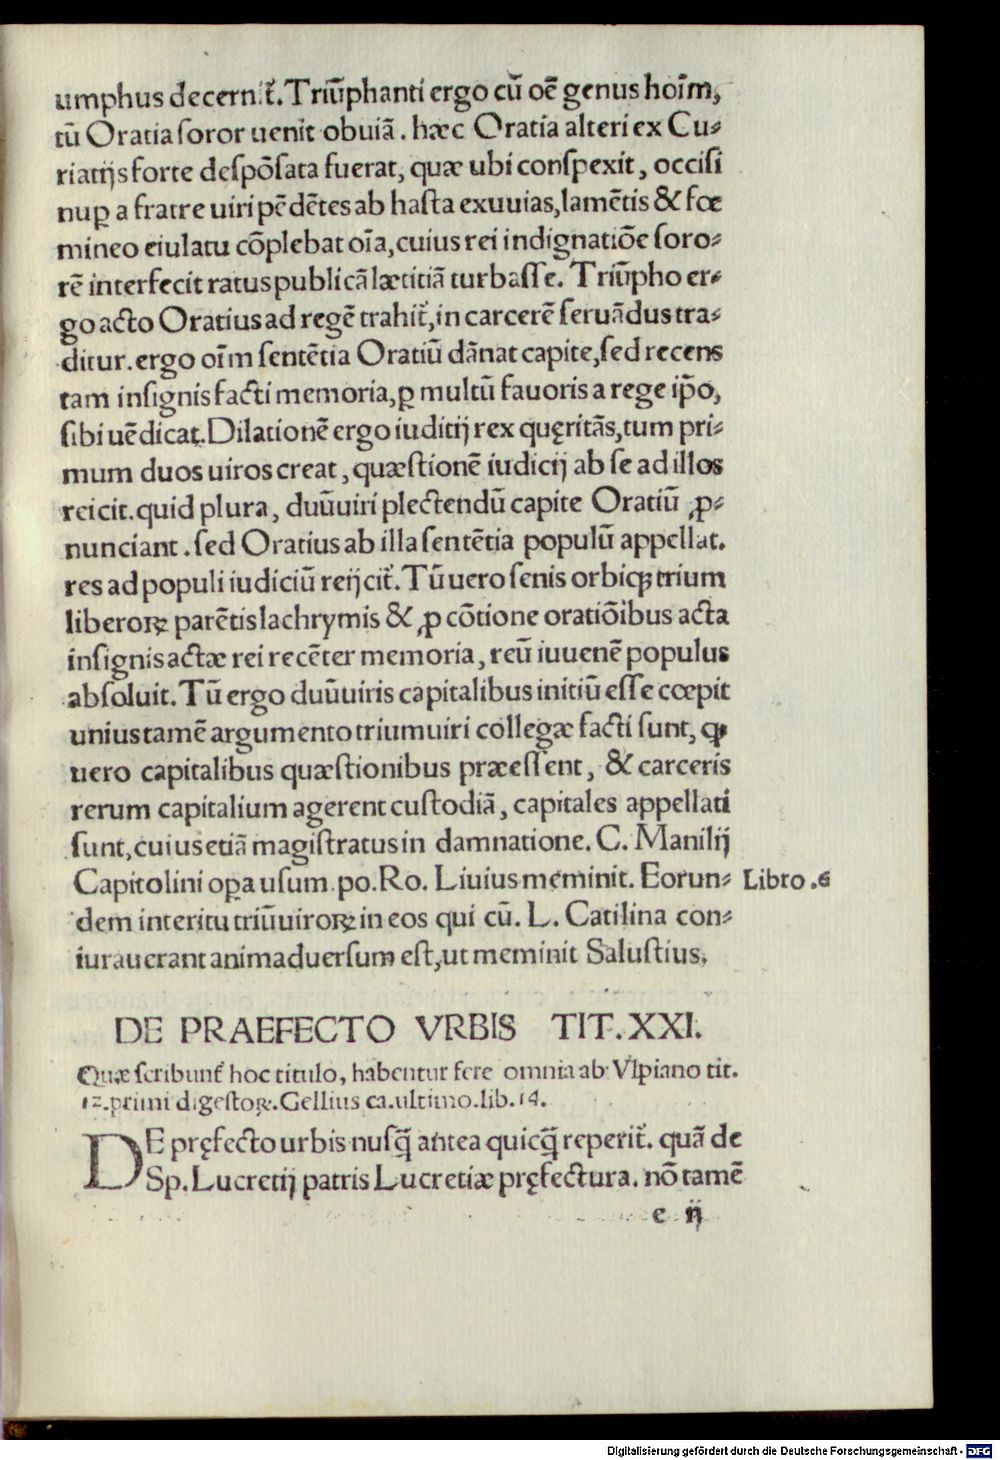 umphus decernit̃. Triũphanti ergo cũ oẽ genus hoĩm,
tũ Oratia soror uenit obuiã. hæc Oratia alteri ex Cu⸗
riatijs forte despõsata fuerat, quæ ubi conspexit, occisi
nuꝑ a fratre uiri pẽdẽtes ab hasta exuuias, lamẽtis & fœ
mineo eiulatu cõplebat oĩa, cuius rei indignatiõe soro⸗
rẽ interfecit ratus publicã lætitiã turbasse. Triũpho er⸗
go acto Oratius ad regẽ trahit̃, in carcerẽ seruãdus tra⸗
ditur. ergo oĩm sentẽtia Oratiũ dãnat capite, sed recens
tam insignis facti memoria, ꝑ multũ fauoris a rege ip̃o,
sibi uẽdicat. Dilationẽ ergo iuditij rex quęritãs, tum pri⸗
mum duos uiros creat, quæstionẽ iudicij ab se ad illos
reicit. quid plura, duũuiri plectendũ capite Oratiũ ꝓ⸗
nunciant. sed Oratius ab illa sentẽtia populũ appellat.
res ad populi iudiciũ reijcit̃. Tũ uero senis orbiqꝫ trium
liberoꝝ parẽtis lachrymis & ꝓ cõtione oratiõibus acta
insignis actæ rei recẽter memoria, reũ iuuenẽ populus
absoluit. Tũ ergo duũuiris capitalibus initiũ esse cœpit
unius tamẽ argumento triumuiri collegæ facti sunt, qꝫ
uero capitalibus quæstionibus præessent, & carceris
rerum capitalium agerent custodiã, capitales appellati
sunt, cuius etiã magistratus in damnatione. C. Manilij
Capitolini oꝑa usum po. Ro. Liuius meminit. Eorun⸗ Libro .6
dem interitu triũuiroꝝ in eos qui cũ. L. Catilina con⸗
iurauerant animaduersum est, ut meminit Salustius.
DE PRAEFECTO VRBIS TIT. XXI.
Quæ scribunt̃ hoc titulo, habentur fere omnia ab Vlpiano tit.
12. primi digestoꝝ. Gellius ca. ultimo. lib. 14.
DE pręfecto urbis nusq̃ antea quicq̃ reperit̃. quã de
Sp. Lucretij patris Lucretiæ pręfectura. nõ tamẽ
e ij
Digitalisierung gefördert durch die Deutsche Forschungsgemeinschaft - DFG